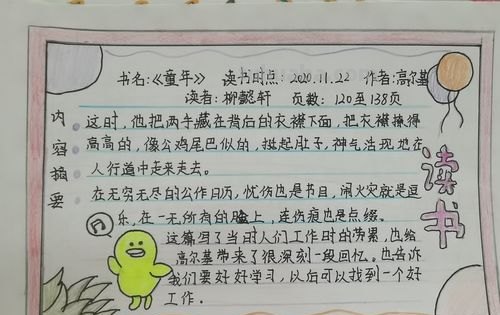 书名:《童年》 读书时点:2020.11.22 作者:高尔基
读者:柳懿轩 页数:120至138页
内容摘要
这时,他把两手藏在背后的衣襟下面,把衣襟撩得
高高的,像公鸡尾巴似的,挺起肚子,神气活现地在
人行道中走来走去。
在无穷无尽的公作日历,忧伤也是节目,闹火灾就是逗
乐,在一无所有的脸上,连伤痕也是点缀。
这篇写了当时人们工作时的劳累,也给
高尔基带来了很深刻一段回忆。也告诉
我们要好好学习,以后可以找到一个好
工作.
读书